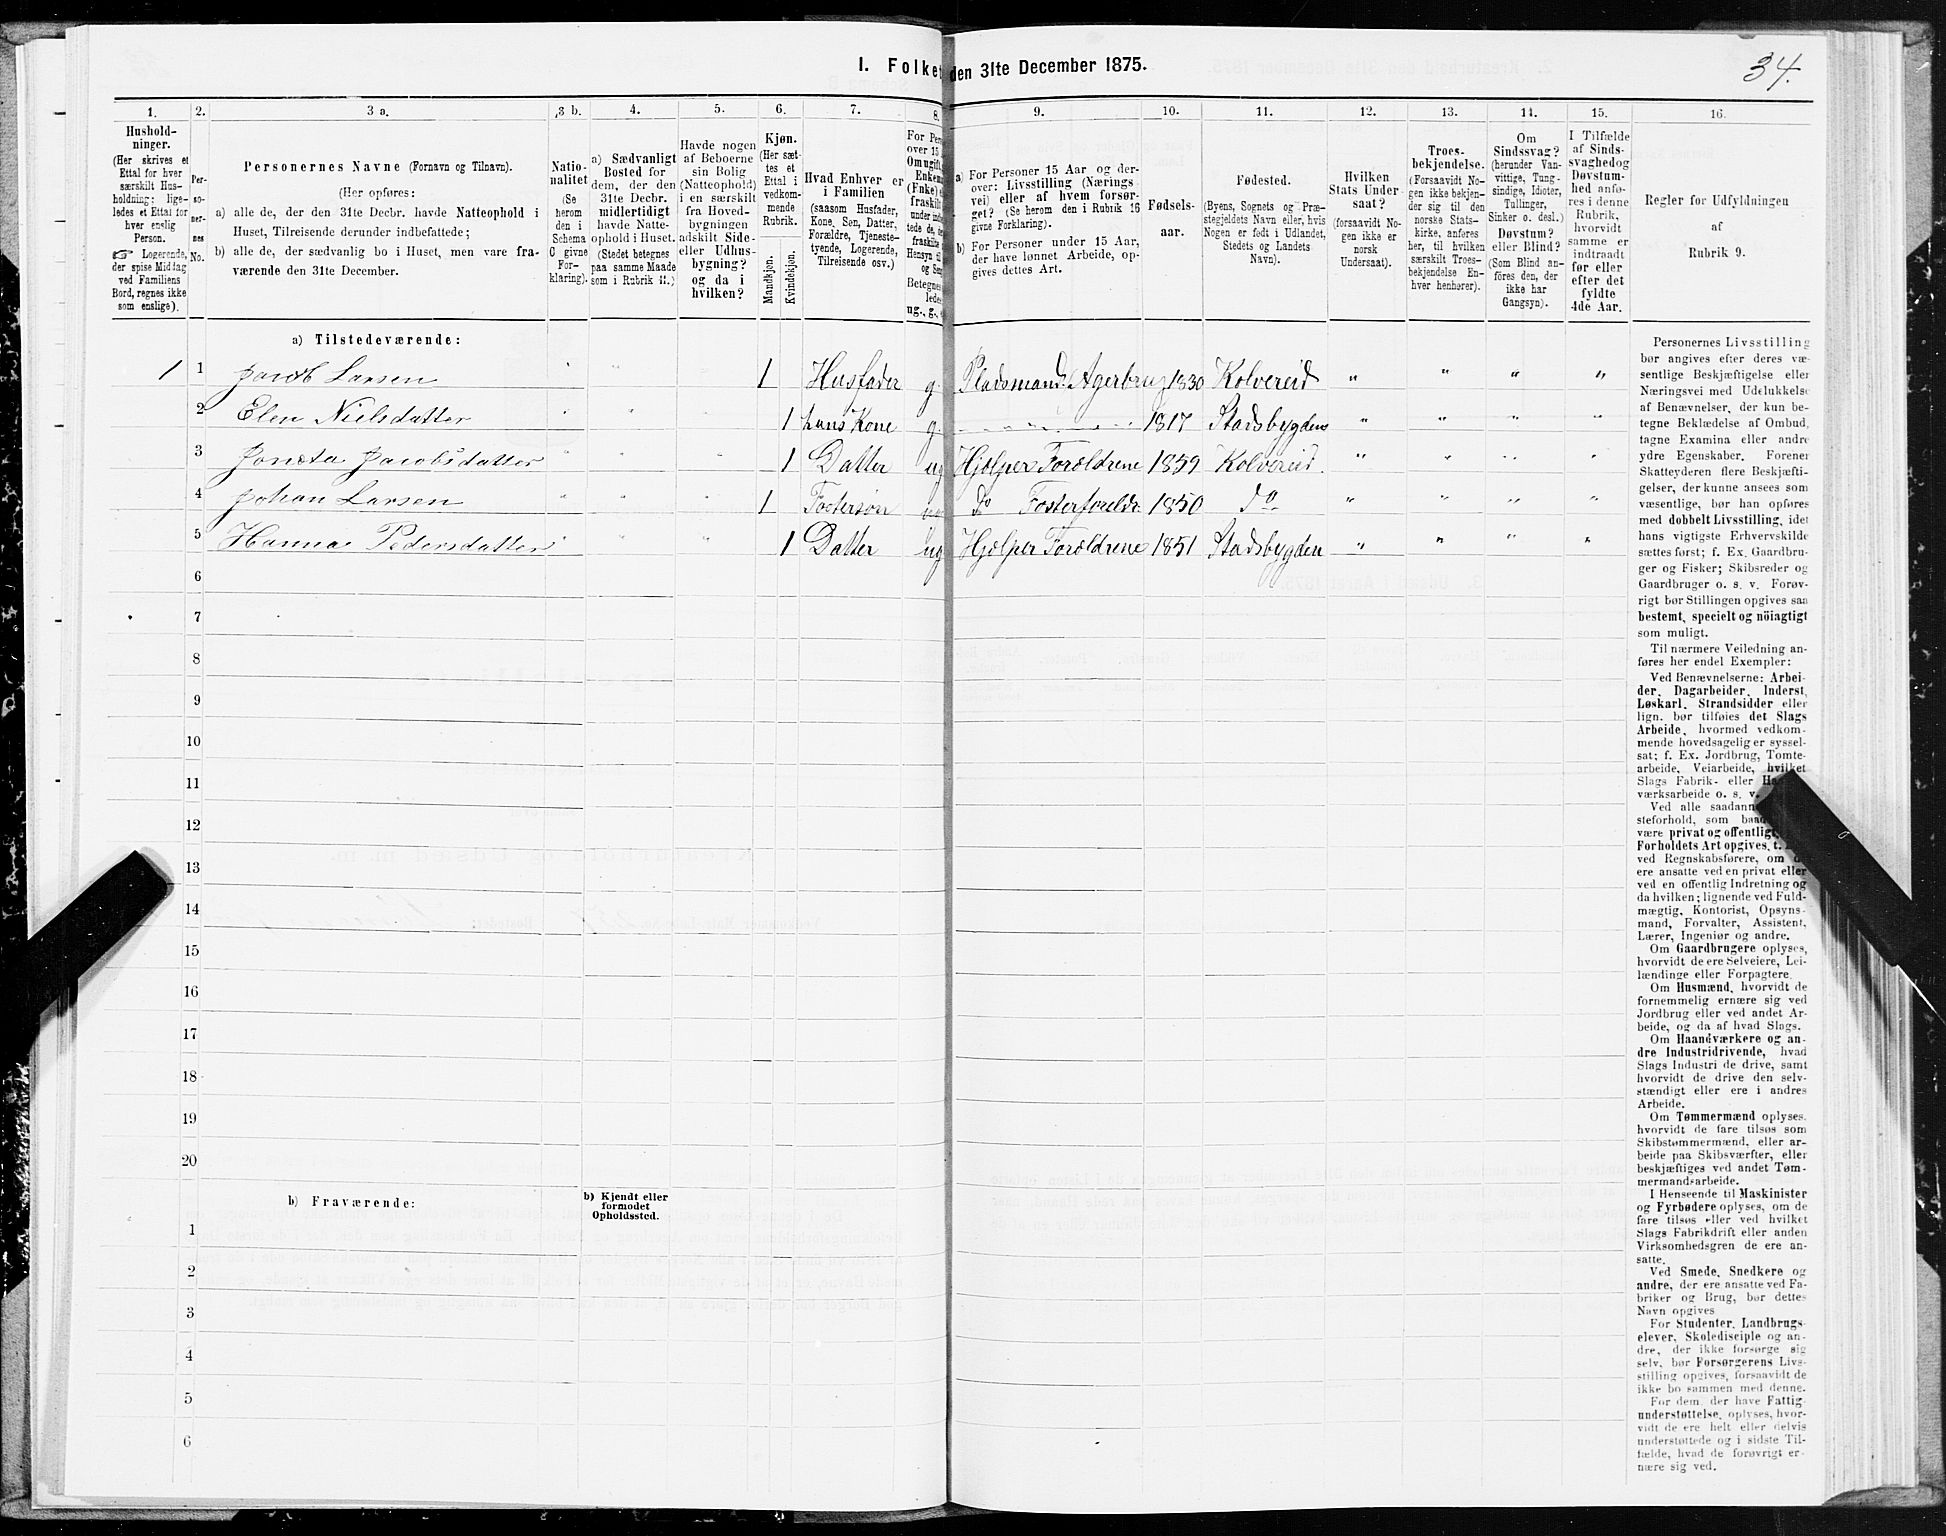 I. Folket
den 31te December 1875.
34.
1.
Hushold-
ninger.
(Her skrives et
Ettal for hver
særskilt Hus-
holdning; lige-
ledes et Ettal for
hver enslig
Person.
☞ Logerende,
der spise Middag
ved Familiens
Bord, regnes ikke
som enslige).
2.
Per-
so-
ner-
nes
No.
3 a.
Personernes Navne (Fornavn og Tilnavn).
(Her opføres:
a) alle de, der den 31te Decbr. havde Natteophold i
Huset, Tilreisende derunder indbefattede;
b) alle de, der sædvanlig bo i Huset, men vare fra-
værende den 31te December.
3 b.
Natio-
nalitet
(Se
herom
den i
Schema
C givne
For-
klaring).
4.
a) Sædvanligt
Bosted for
dem, der den
31te Decbr.
midlertidigt
havde Natte-
ophold i Huset.
(Stedet betegnes
paa samme Maade
som i Rubrik 11.)
5.
Havde nogen
af Beboerne
sin Bolig
(Natteophold)
i en særskilt
fra Hoved-
bygningen
adskilt Side-
eller Udhus-
bygning?
og da i
hvilken?
6.
Kjøn.
(Her sæt-
tes et
Ettal i
vedkom-
mende
Rubrik.
Mandkjøn.
Kvindekjøn.
7.
Hvad Enhver er
i Familien
(saasom Husfader,
Kone, Søn, Datter,
Forældre, Tjeneste-
tyende, Logerende,
Tilreisende osv.)
8.
For Pers
over 15
Om ugift,
Enkem
(Enke)
fraskilt
Betegnes
ug., g.,
9.
a) For Personer 15 Aar og der-
over: Livsstilling (Nærings-
vei) eller af hvem forsør-
get? (Se herom den i Rubrik 16
givne Forklaring).
b) For Personer under 15 Aar,
der have lønnet Arbeide, op-
gives dettes Art.
10.
Fødsels-
aar.
11.
Fødested.
(Byens, Sognets og Præ-
stegjeldets Navn eller, hvis
Nogen er født i Udlandet,
Stedets og Landets
Navn).
12.
Hvilken
Stats Under-
saat?
(forsaavidt No-
gen ikke er
norsk
Undersaat).
13.
Troes-
bekjendelse.
(Forsaavidt No-
gen ikke bekjen-
der sig til den
norske Stats-
kirke, anføres
her, til hvilken
særskilt Troes-
bekjendelse En-
hver henhører).
14.
Om
Sindssvag?
(herunder Van-
vittige, Tung-
sindige, Idioter,
Tullinger,
Sinker o. desl.)
Døvstum?
eller Blind?
(Som Blind an-
føres den, der
ikke har
Gangsyn).
15.
I Tilfælde
af Sinds-
svaghed og
Døvstum-
hed anfø-
res i denne
Rubrik,
hvorvidt
samme er
indtraadt
før eller
efter det
fyldte
4de Aar.
16.
Regler for Udfyldningen
af
Rubrik 9.
a) Tilstedeværende:
1 1 Jacob Larsen " " 1 Husfader g. Pladsmand Agerbrug 1830 Kolvereid " " " "
2 Elen Nielsdatter " " " 1 hans Kone g. 1817 Stadsbygden " " " "
3 Joneta Jacobsdatter " " " 1 Datter ug Hjelper Forældrene 1859 Kolvereid " " " "
4 Johan Larsen " " " 1 Fostersøn do Fosterforeldr. 1850 do " " " "
5 Hanna Pedersdatter " " " 1 Datter ug Hjælper Forældrene 1851 Stadsbygden " " " "
6
7
8
9
10
11
12
13
14
15
16
17
18
19
20
b) Fraværende:
b) Kjendt eller
formodet
Opholdssted.
1
2
3
4
5
6
Personernes Livsstilling
bør angives efter deres væ-
sentlige Beskjæftigelse eller
Næringsvei med Udelukkelse
af Benævnelser, der kun be-
tegne Beklædelse af Ombud,
tagne Examina eller andre
ydre Egenskaber. Forener
Skatteyderen flere Beskjæfti-
gelser, der kunne ansees som
væsentlige, bør han opføres
med dobbelt Livsstilling, idet
hans vigtigste Erhvervskilde
sættes først; f. Ex. Gaardbru-
ger og Fisker; Skibsreder og
Gaardbruger o. s. v. Forøv-
rigt bør Stillingen opgives saa
bestemt, specielt og nöiagtigt
som muligt.
Til nærmere Veiledning an-
føres her endel Exempler:
Ved Benævnelserne: Arbei-
der, Dagarbeider, Inderst,
Løskarl, Strandsidder eller
lign. bør tilføies det Slags
Arbeide, hvormed vedkom-
mende hovedsagelig er syssel-
sat; f. Ex. Jordbrug, Tomte-
arbeide, Veiarbeide, hvilket
Slags Fabrik- eller
værksarbeide o. s. v.
Ved alle saadann
steforhold, som baad
være privat og offentligt,
Forholdets Art opgives, t.
ved Regnskabsførere, om
ere ansatte ved en privat eller
ved en offentlig Indretning og
da hvilken; lignende ved Fuld-
mægtig, Kontorist, Opsyns-
mand, Forvalter, Assistent,
Lærer, Ingeniør og andre.
Om Gaardbrugere oplyses,
hvorvidt de ere Selveiere, Lei-
lændinge eller Forpagtere.
Om Husmænd, hvorvidt de
fornemmelig ernære sig ved
Jordbrug eller ved andet Ar-
beide, og da af hvad Slags.
Om Haandværkere og an-
dre Industridrivende, hvad
Slags Industri de drive, samt
hvorvidt de drive den selv-
stændigt eller ere i andres
Arbeide.
Om Tømmermænd oplyses,
hvorvidt de fare tilsøs som
Skibstømmermænd, eller ar-
beide paa Skibsværfter, eller
beskjæftiges ved andet Tøm-
mermandsarbeide.
I Henseende til Maskinister
og Fyrbødere oplyses, om de
fare tilsøs eller ved hvilket
Slags Fabrikdrift eller anden
Virksomhedsgren de ere an-
satte.
Ved Smede, Snedkere og
andre, der ere ansatte ved Fa-
briker og Brug, bør dettes
Navn opgives
For Studenter, Landbrugs-
elever, Skoledisciple og an-
dre, der ikke forsørge sig
selv, bør Forsørgerens Livs-
stilling opgives, forsaavidt de
ikke bo sammen med denne.
For dem, der have Fattig-
understøttelse, oplyses, hvor-
vidt de ere helt eller delvis
understøttede og i sidste Til-
fælde, hvad de forøvrigt er-
nære sig ved.